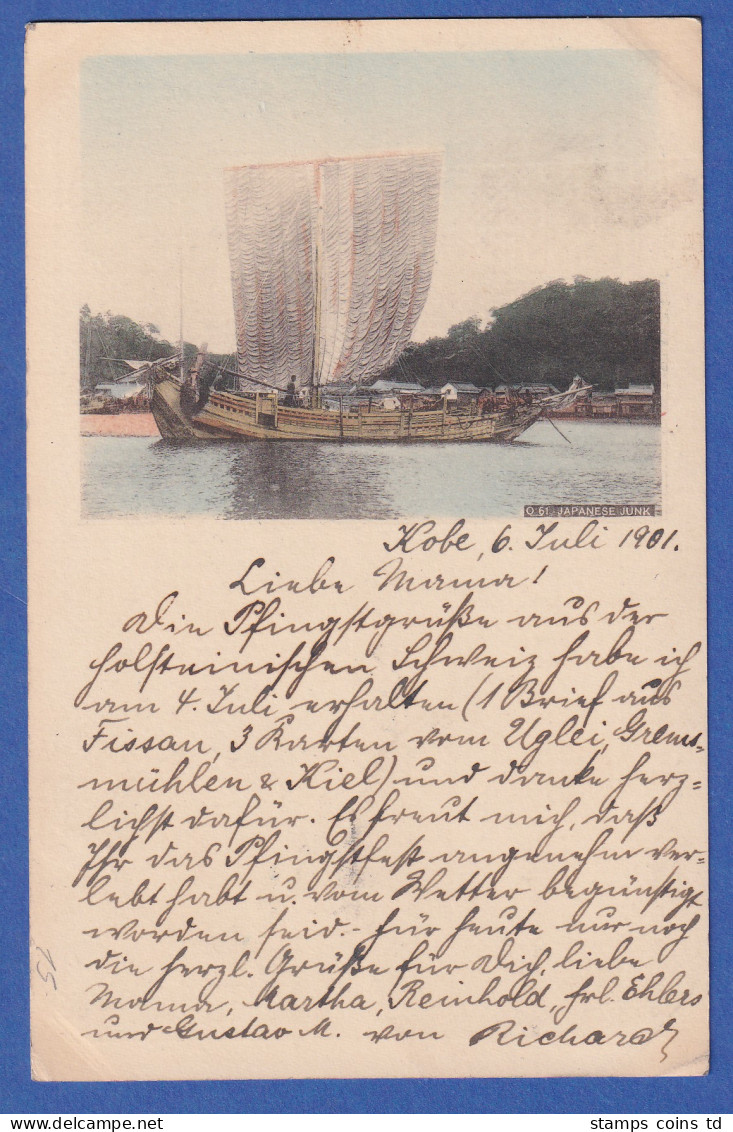 Q 61. JAPANESE JUNK
Kobe, 6. Juli 1901.
Liebe Mama!
Die Pfingstgrüße aus der
holsteinischen Schweiz habe ich
am 4. Juli erhalten (1 Brief aus
Fissau, 3 Karten vom Uglei, Grems-
mühlen & Kiel) und danke herz-
lichst dafür. Es freut mich, daß
Ihr das Pfingstfest angenehm ver-
lebt habt u. vom Wetter begünstigt
worden seid. - Für heute nur noch
die herzl. Grüße für Dich, liebe
Mama, Martha, Reinhold, Frl. Ehlers
und Gustav M. von Richard
15
stamps coins td